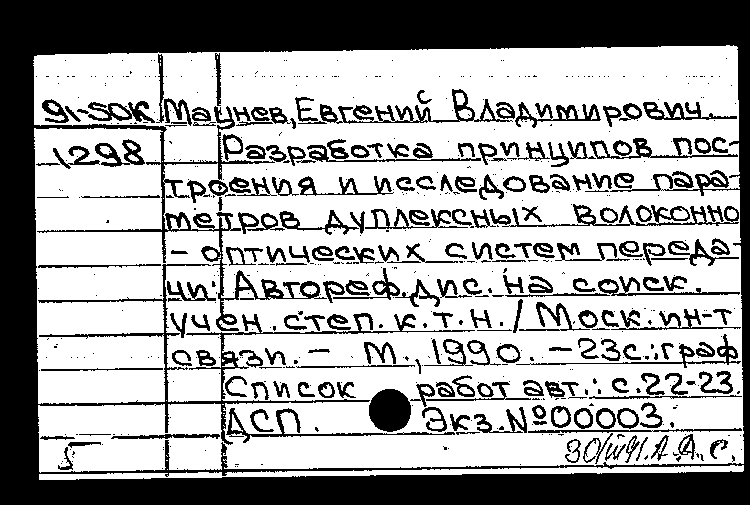 91-50К Маунев, Евгений Владимирович.
1298 Разработка принципов пос-
троения и исследование пара-
метров дуплексных волоконно
- оптических систем переда-
чи: Автореф. дис. на соиск.
учен. степ. к.т.н. / Моск. ин-т
связи. - М., 1990. - 23с.: граф
Список работ авт.: с.22-23.
ДСП. Экз. №00003.
5 30/III 91. А.А. С.